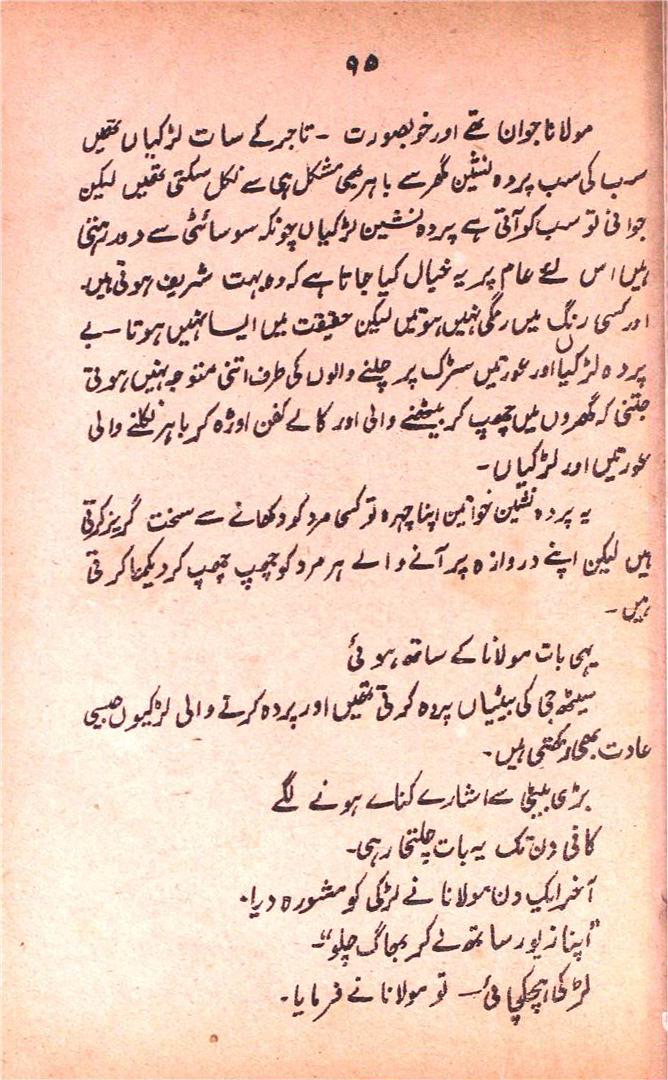 ۹۵
مولانا جوان تھے اور خوبصورت - تاجر کے سات لڑکیاں تھیں
سب کی سب پردہ نشین گھر سے باہر بھی مشکل ہی سے نکل سکتی تھیں لیکن
جوانی تو سب کو آتی ہے پردہ نشین لڑکیاں چونکہ سوسائٹی سے دور رہتی
ہیں اس لئے عام پر یہ خیال کیا جاتا ہے کہ وہ بہت شریف ہوتی ہیں۔
اور کسی رنگ میں رنگی نہیں ہوتیں لیکن حقیقت میں ایسا نہیں ہوتا - بے
پردہ لڑکیاں اور عورتیں سڑک پر چلنے والوں کی طرف اتنی متوجہ نہیں ہوتی
جتنی کہ گھروں میں چھپ کر بیٹھنے والی اور کالے کفن اوڑھ کر باہر نکلنے والی
عورتیں اور لڑکیاں -
یہ پردہ نشین خواتین اپنا چہرہ تو کسی مرد کو دکھانے سے سخت گریز کرتی
ہیں لیکن اپنے دروازہ پر آنے والے ہر مرد کو چھپ چھپ کر دیکھا کرتی
ہیں -
یہی بات مولانا کے ساتھ ہوئی
سیٹھ جی کی بیٹیاں پردہ کرتی تھیں اور پردہ کرنے والی لڑکیوں جیسی
عادت بھی رکھتی ہیں -
بڑی بیٹی سے اشارے کنائے ہونے لگے
کافی دن تک یہ بات چلتی رہی -
آخر ایک دن مولانا نے لڑکی کو مشورہ دیا۔
"اپنا زیور ساتھ لے کر بھاگ چلو" -
لڑکی ہچکچائی - تو مولانا نے فرمایا -